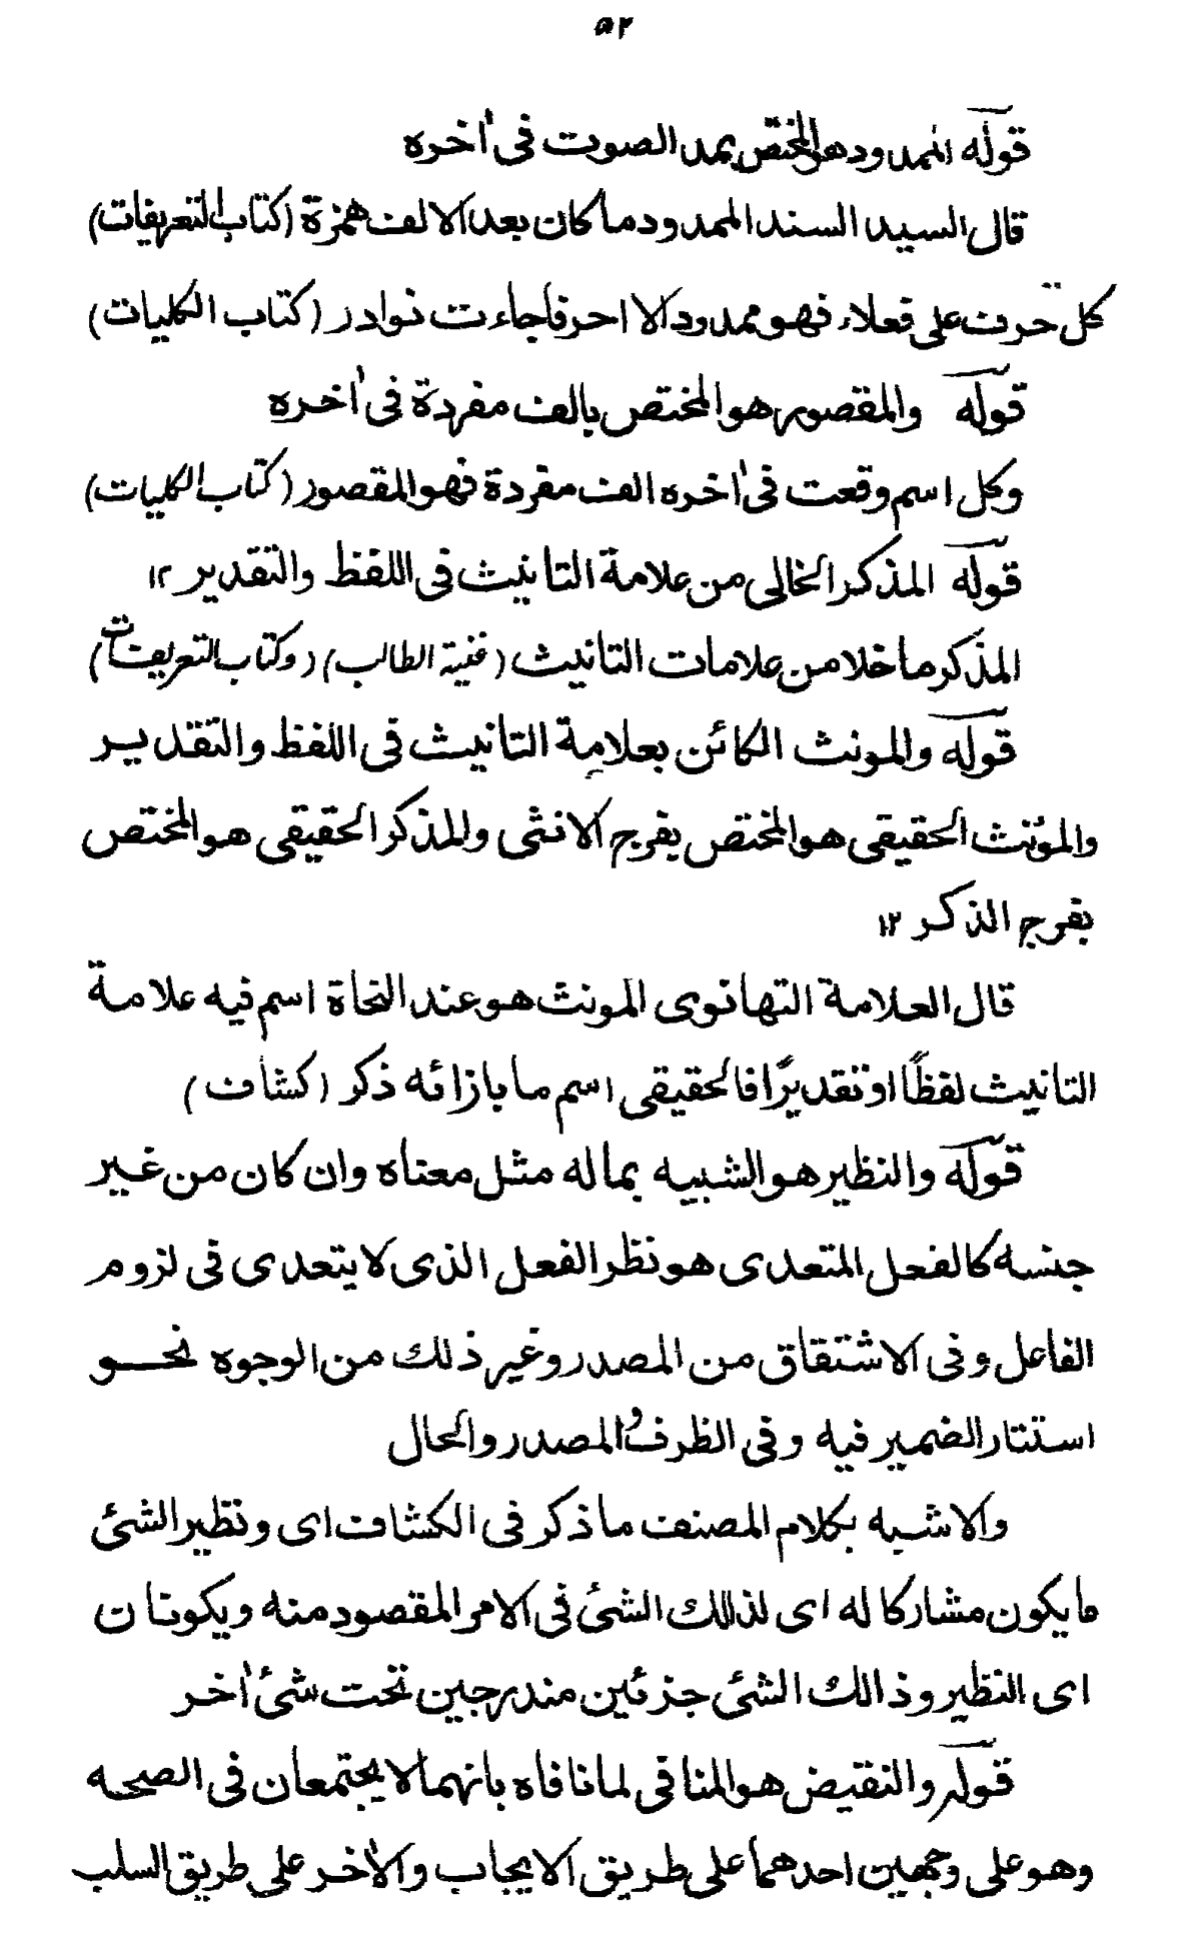 ۵۲
قوله الممدود هو المختص بمد الصوت فی اٰخره
قال السيد السند الممدود ما كان بعد الالف همزة (كتاب التعريفات)
كل حرف على فعلاء فهو ممدود الا احرفا جاءت نوادر (كتاب الكليات)
قوله والمقصور هو المختص بالف مفردة فی اٰخره
وكل اسم وقعت فی اٰخره الف مفردة فهو المقصور (كتاب الكليات)
قوله المذكر الخالی من علامة التانيث فی اللفظ والتقدير ۱۲
المذكر ما خلا من علامات التانيث (غنية الطالب) (وكتاب التعريفات)
قوله والمونث الكائن بعلامة التانيث فی اللفظ والتقدير
والمؤنث الحقيقی هو المختص بفرج الانثی والمذكر الحقيقی هو المختص
بفرج الذكر ۱۲
قال العلامة التهانوی المونث هو عند النحاة اسم فيه علامة
التانيث لفظًا او تقديرًا فالحقيقی اسم ما بازائه ذكر (كشاف)
قوله والنظير هو الشبيه بماله مثل معناه وان كان من غير
جنسه كالفعل المتعدی هو نظر الفعل الذی لا يتعدی فی لزوم
الفاعل وفی الاشتقاق من المصدر وغير ذلك من الوجوه نحو
استتار الضمير فيه وفی الظرف والمصدر والحال
والاشبه بكلام المصنف ما ذكر فی الكشاف ای ونظير الشئ
ما يكون مشاركا له ای لذلك الشئ فی الامر المقصود منه ويكونان
ای النظير وذالك الشئ جزئين مندرجين تحت شئ اٰخر
قوله والنقيض هو المنافی لما نافاه بانهما لا يجتمعان فی الصحه
وهو علی وجهين احدهما علی طريق الايجاب والاٰخر علی طريق السلب